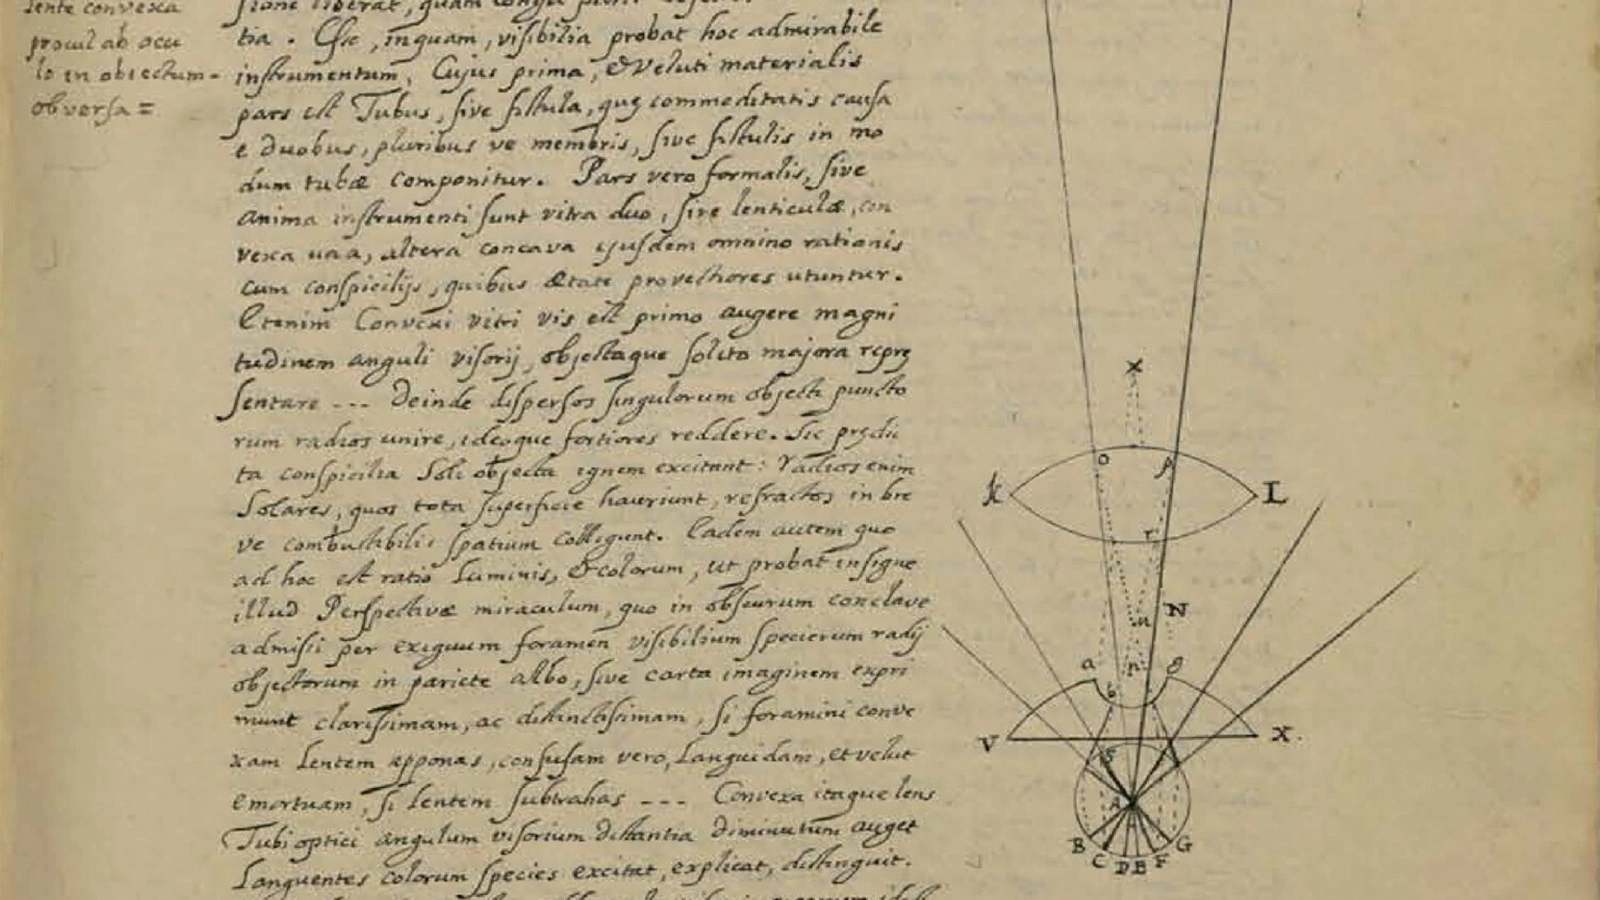 lente convexa
procul ab ocu
lo in obiectum-
obversa =
tia. Esse, inquam, visibilia probat hoc admirabile
instrumentum, Cujus prima, & veluti materialis
pars est Tubus, sive fistula, quę commoditatis causa
e duobus, pluribus ve membris, sive fistulis in mo
dum tubæ componitur. Pars vero formalis, sive
anima instrumenti sunt vitra duo, sive lenticulæ, con
vexa una, altera concava ejusdem omnino rationis
cum conspicilijs, quibus ætate provectiores utuntur.
Etenim Convexi vitri vis est primo augere magni
tudinem anguli visorij, objectaque solito majora reprę
sentare --- Deinde dispersos singulorum objecti puncto
rum radios unire, ideoque fortiores reddere. Sic prędic
ta conspicilia Soli objecta ignem excitant: radios enim
Solares, quos tota superficie hauriunt, refractos in bre
ve combustibilis spatium colligunt. Eadem autem quo
ad hoc est ratio Luminis, & colorum, ut probat insigne
illud Perspectivæ miraculum, quo in obscurum conclave
admisii per exiguum foramen visibilium specierum radij
objectorum in pariete albo, sive carta imaginem expri
munt clarissimam, ac distinctissimam, si foramini conve
xam Lentem apponas, confusam vero, Languidam, et velut
emortuam, si Lentem subtrahas --- Convexa itaque lens
Tubi optici angulum visorium distantia diminutum auget
Languentes colorum species excitat, explicat, distinguit.
x
o p
K L
r
N
n
a n
b
V X.
S
A
B C D E F G